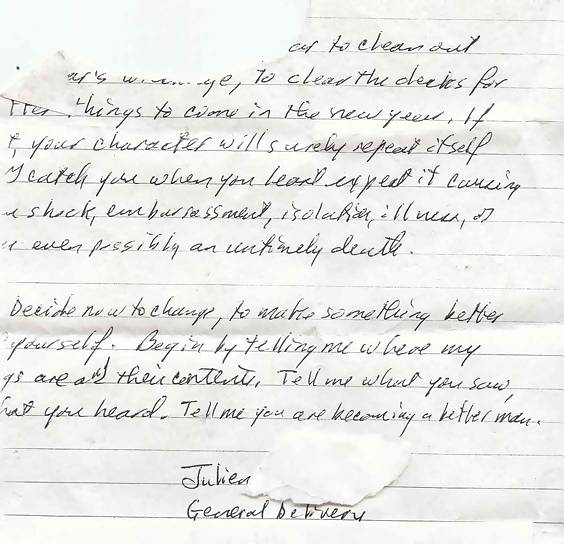 to clean out
to clear the decks for
things to come in the new year. If
your character will surely repeat itself
catch you when you least expect it causing
shock, embarrassment, isolation, illness, or
even possibly an untimely death.
Decide now to change, to make something better
yourself. Begin by telling me where my
are and their contents. Tell me what you saw,
you heard. Tell me you are becoming a better man.
Julien
General Delivery